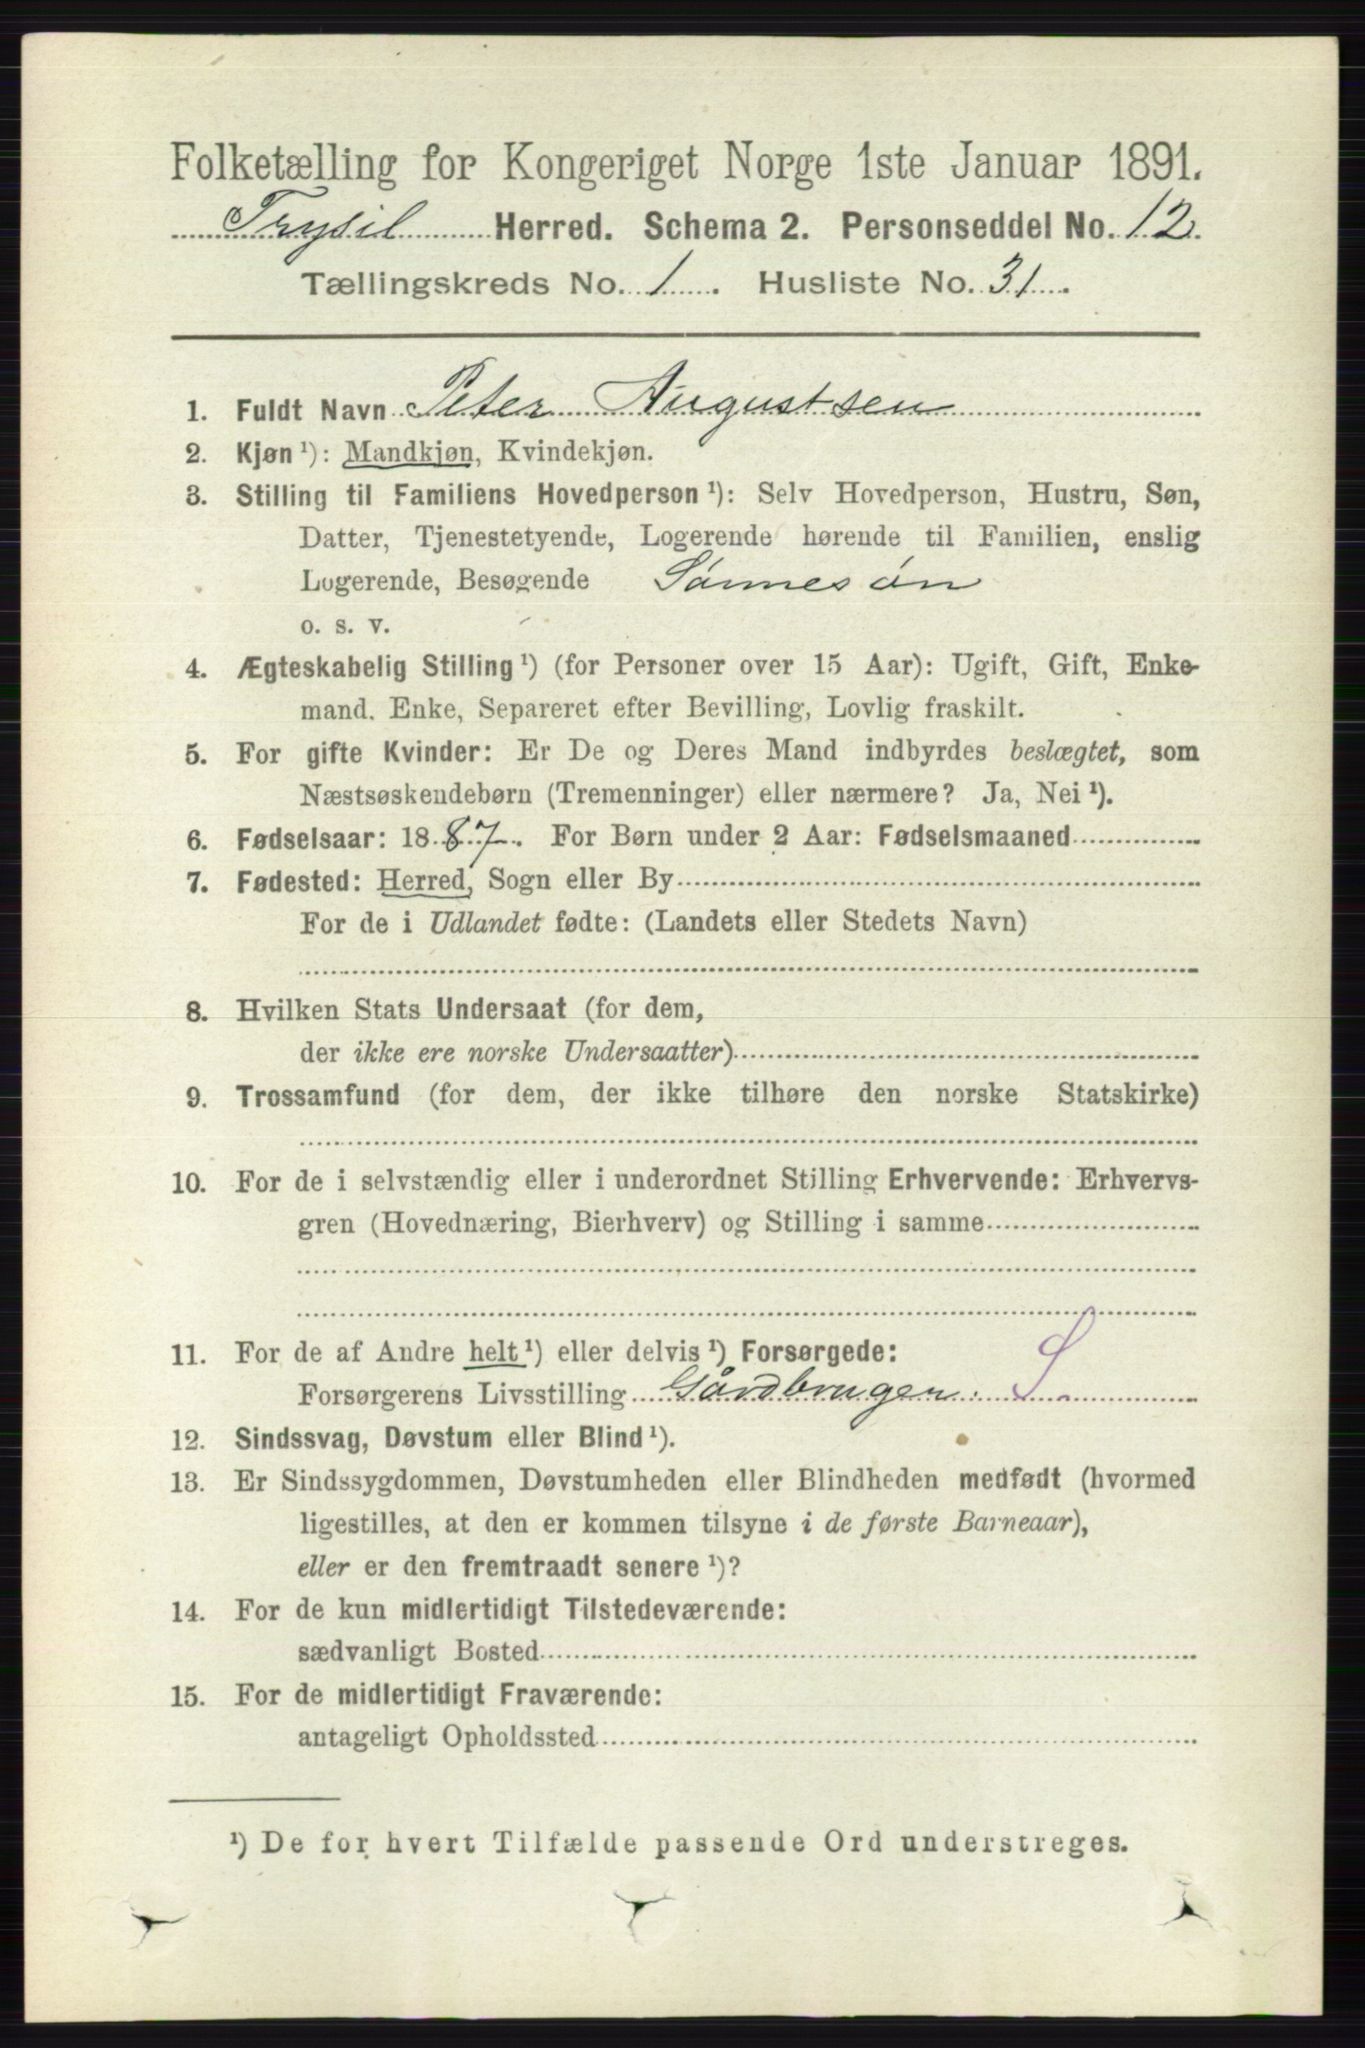 Folketælling for Kongeriget Norge 1ste Januar 1891.
Trysil Herred. Schema 2. Personseddel No. 12.
Tællingskreds No. 1. Husliste No. 31.
1. Fuldt Navn Peter Augustsen
2. Kjøn ¹): Mandkjøn, Kvindekjøn.
3. Stilling til Familiens Hovedperson ¹): Selv Hovedperson, Hustru, Søn,
Datter, Tjenestetyende, Logerende hørende til Familien, enslig
Logerende, Besøgende Sønnesøn
o. s. v.
4. Ægteskabelig Stilling ¹) (for Personer over 15 Aar): Ugift, Gift, Enke-
mand, Enke, Separeret efter Bevilling, Lovlig fraskilt.
5. For gifte Kvinder: Er De og Deres Mand indbyrdes beslægtet, som
Næstsøskendebørn (Tremenninger) eller nærmere? Ja, Nei ¹).
6. Fødselsaar: 1887. For Børn under 2 Aar: Fødselsmaaned
7. Fødested: Herred, Sogn eller By
For de i Udlandet fødte: (Landets eller Stedets Navn)
8. Hvilken Stats Undersaat (for dem,
der ikke ere norske Undersaatter)
9. Trossamfund (for dem, der ikke tilhøre den norske Statskirke)
10. For de i selvstændig eller i underordnet Stilling Erhvervende: Erhvervs-
gren (Hovednæring, Bierhverv) og Stilling i samme
11. For de af Andre helt ¹) eller delvis ¹) Forsørgede:
Forsørgerens Livsstilling Gårdbruger. S
12. Sindssvag, Døvstum eller Blind ¹).
13. Er Sindssygdommen, Døvstumheden eller Blindheden medfødt (hvormed
ligestilles, at den er kommen tilsyne i de første Barneaar),
eller er den fremtraadt senere ¹)?
14. For de kun midlertidigt Tilstedeværende:
sædvanligt Bosted
15. For de midlertidigt Fraværende:
antageligt Opholdssted
¹) De for hvert Tilfælde passende Ord understreges.